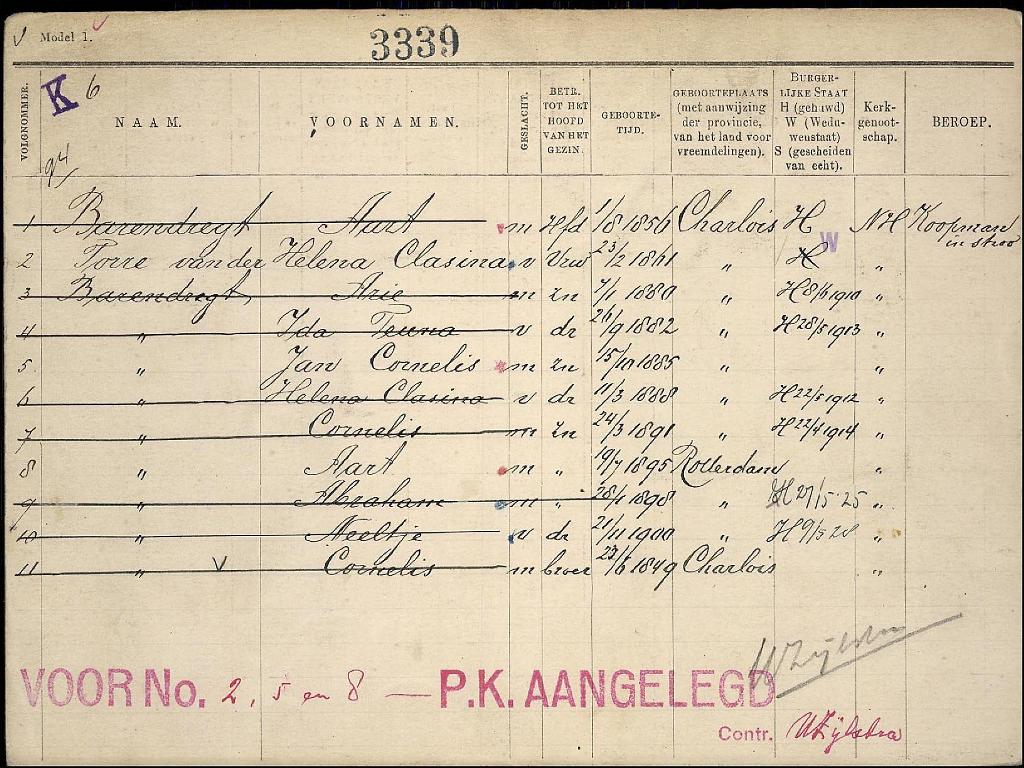 Model 1.
3339
K 6
94
VOLGNOMMER. NAAM. VOORNAMEN. GESLACHT. BETR. TOT HET HOOFD VAN HET GEZIN. GEBOORTE-TIJD. GEBOORTEPLAATS (met aanwijzing der provincie, van het land voor vreemdelingen). BURGER-LIJKE STAAT H (gehuwd) W (Weduwenstaat) S (gescheiden van echt). Kerk-genoot-schap. BEROEP.
1 Barendregt Aart m Hfd 1/8 1856 Charlois H NH Koopman in stroo
2 Torre van der Helena Clasina v Vrw 23/2 1861 " H W "
3 Barendregt Arie m zn 7/1 1880 " H 8/6 1910 "
4 " Ida Teuna v dr 26/9 1882 " H 28/5 1913 "
5. " Jan Cornelis m zn 15/10 1885 " "
6 " Helena Clasina v dr 11/3 1888 " H 22/5 1912 "
7 " Cornelis m zn 24/3 1891 " H 22/4 1914 "
8 " Aart m " 19/7 1895 Rotterdam "
9 " Abraham m " 28/1 1898 " H 27/5 25 "
10 " Neeltje v dr 21/11 1900 " H 9/5 28 "
11 " V Cornelis m broer 23/6 1849 Charlois "
WZijlstra
VOOR No. 2, 5 en 8 — P.K. AANGELEGD
Contr. WZijlstra